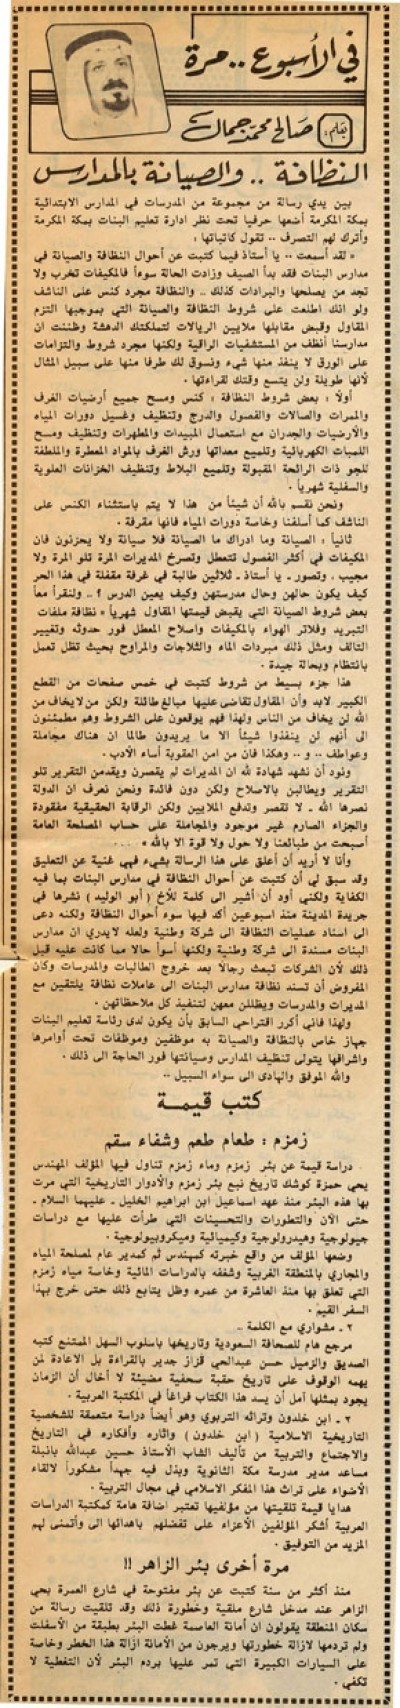 في الأسبوع .. مرة
بقلم: صالح محمد جمال
النظافة .. والصيانة بالمدارس
بين يدي رسالة من مجموعة من المدرسات في المدارس الابتدائية
بمكة المكرمة أضعها حرفيا تحت نظر ادارة تعليم البنات بمكة المكرمة
وأترك لهم التصرف .. تقول كاتباتها :
« لقد أسمعت .. يا أستاذ فيما كتبت عن أحوال النظافة والصيانة في
مدارس البنات فقد بدأ الصيف وزادت الحالة سوءاً فالمكيفات تخرب ولا
تجد من يصلحها والبرادات كذلك .. والنظافة مجرد كنس على الناشف
ولو انك اطلعت على شروط النظافة والصيانة التي بموجبها التزم
المقاول وقبض مقابلها ملايين الريالات لتملكتك الدهشة وظننت ان
مدارسنا أنظف من المستشفيات الراقية ولكنها مجرد شروط والتزامات
على الورق لا ينفذ منها شيء ونسوق لك طرفا منها على سبيل المثال
لأنها طويلة ولن يتسع وقتك لقراءتها .
أولاً : بعض شروط النظافة : كنس ومسح جميع أرضيات الغرف
والممرات والصالات والفصول والدرج وتنظيف وغسيل دورات المياه
والأرضيات والجدران مع استعمال المبيدات والمطهرات وتنظيف ومسح
اللمبات الكهربائية وتلميع معداتها ورش الغرف بالمواد المعطرة والملطفة
للجو ذات الرائحة المقبولة وتلميع البلاط وتنظيف الخزانات العلوية
والسفلية شهرياً .
ونحن نقسم بالله أن شيئاً من هذا لا يتم باستثناء الكنس على
الناشف كما أسلفنا وخاصة دورات المياه فانها مقرفة .
ثانياً : الصيانة وما ادراك ما الصيانة فلا صيانة ولا يحزنون فان
المكيفات في أكثر الفصول تتعطل وتصرخ المديرات المرة تلو المرة ولا
مجيب . وتصور ـ يا أستاذ ـ ثلاثين طالبة في غرفة مقفلة في هذا الحر
كيف يكون حالهن وحال مدرستهن وكيف يعين الدرس ؟ .. ولنقرأ معاً
بعض شروط الصيانة التي يقبض قيمتها المقاول شهرياً « نظافة ملفات
التبريد وفلاتر الهواء بالمكيفات واصلاح المعطل فور حدوثه وتغيير
التالف ومثل ذلك مبردات الماء والثلاجات والمراوح بحيث تظل تعمل
بانتظام وبحالة جيدة .
هذا جزء بسيط من شروط كتبت في خمس صفحات من القطع
الكبير لابد وأن المقاول تقاضى عليها مبالغ طائلة ولكن من لا يخاف من
الله لن يخاف من الناس ولهذا فهم يوقعون على الشروط وهم مطمئنون
الى أنهم لن ينفذوا شيئاً الا ما يريدون طالما ان هناك مجاملة
وعواطف .. و .. وهكذا فان من امن العقوبة أساء الأدب .
ونود أن نشهد شهادة لله ان المديرات لم يقصرن ويقدمن التقرير تلو
التقرير ويطالبن بالاصلاح ولكن دون فائدة ونحن نعرف ان الدولة
نصرها الله ـ لا تقصر وتدفع الملايين ولكن الرقابة الحقيقية مفقودة
والجزاء الصارم غير موجود والمجاملة على حساب المصلحة العامة
أصبحت من طبائعنا ولا حول ولا قوة الا بالله » ...
وأنا لا أريد أن أعلق على هذا الرسالة بشيء فهي غنية عن التعليق
وقد سبق لي أن كتبت عن أحوال النظافة في مدارس البنات بما فيه
الكفاية ولكني أود أن أشير الى كلمة للأخ ( أبو الوليد ) نشرها في
جريدة المدينة منذ اسبوعين أكد فيها سوء أحوال النظافة ولكنه دعى
الى اسناد عمليات النظافة الى شركة وطنية ولعله لا يدري ان مدارس
البنات مسندة الى شركة وطنية ولكنها أسوأ حالا مما كانت عليه قبل
ذلك لأن الشركات تبعث رجالاً بعد خروج الطالبات والمدرسات وكان
المفروض أن تسند نظافة مدارس البنات الى عاملات نظافة يلتقين مع
المديرات والمدرسات ويظللن معهن لتنفيذ كل ملاحظاتهن .
ولهذا فاني أكرر اقتراحي السابق بأن يكون لدى رئاسة تعليم البنات
جهاز خاص بالنظافة والصيانة به موظفين وموظفات تحت أوامرها
واشرافها يتولى تنظيف المدارس وصيانتها فور الحاجة الى ذلك .
والله الموفق والهادى الى سواء السبيل ..
كتب قيمة
زمزم : طعام طعم وشفاء سقم
دراسة قيمة عن بئر زمزم وماء زمزم تناول فيها المؤلف المهندس
يحي حمزة كوشك تاريخ نبع بئر زمزم والأدوار التاريخية التي مرت
بها هذه البئر منذ عهد اسماعيل ابن ابراهيم الخليل ـ عليهما السلام ـ
حتى الآن والتطورات والتحسينات التي طرأت عليها مع دراسات
جيولوجية وهيدرولوجية وكيميائية وميكروبيولوجية .
وضعها المؤلف من واقع خبرته كمهندس ثم كمدير عام لمصلحة المياه
والمجاري بالمنطقة الغربية وشغفه بالدراسات المائية وخاصة مياه زمزم
التي تعلق بها منذ العاشرة من عمره وظل يتابع ذلك حتى خرج بهذا
السفر القيم .
٢ ـ مشواري مع الكلمة ..
مرجع هام للصحافة السعودية وتاريخها باسلوب السهل الممتنع كتبه
الصديق والزميل حسن عبدالحي قزاز جدير بالقراءة بل الاعادة لمن
يهمه الوقوف على تاريخ حقبة صحفية مضيئة لا أخال أن الزمان
يجود بمثلها آمل أن يسد هذا الكتاب فراغاً في المكتبة العربية .
٣ ـ ابن خلدون وتراثه التربوي وهو أيضاً دراسة متعمقة للشخصية
التاريخية الاسلامية ( ابن خلدون ) واثاره وأفكاره في التاريخ
والاجتماع والتربية من تأليف الشاب الأستاذ حسين عبدالله بانبيلة
مساعد مدير مدرسة مكة الثانوية وبذل فيه جهداً مشكوراً لالقاء
الأضواء على تراث هذا المفكر الاسلامي في مجال التربية .
هدايا قيمة تلقيتها من مؤلفيها تعتبر اضافة هامة كمكتبة الدراسات
العربية أشكر المؤلفين الأعزاء على تفضلهم باهدائها الى وأتمنى لهم
المزيد من التوفيق .
مرة أخرى بئر الزاهر !!
منذ أكثر من سنة كتبت عن بئر مفتوحة في شارع العمرة بحي
الزاهر عند مدخل شارع ملقية وخطورة ذلك وقد تلقيت رسالة من
سكان المنطقة يقولون ان أمانة العاصمة غطت البئر بطبقة من الأسفلت
ولم تردمها لازالة خطورتها ويرجون من الأمانة ازالة هذا الخطر وخاصة
على السيارات الكبيرة التي تمر عليها بردم البئر لأن التغطية لا
تكفي .